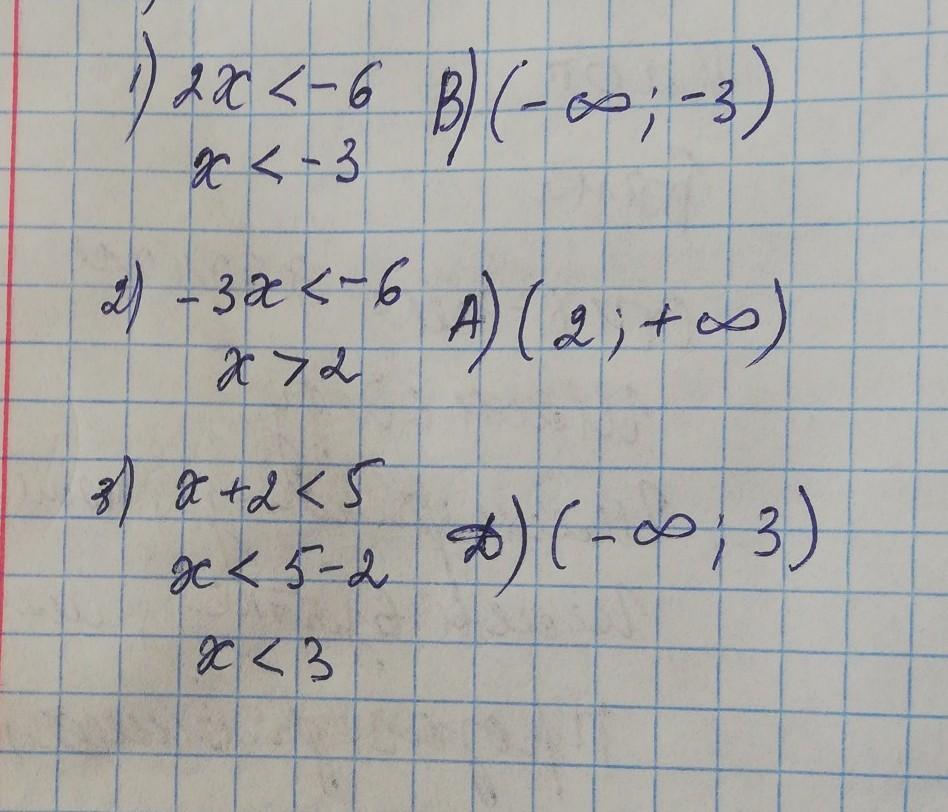 1) 2x < -6 В) (- ∞ ; -3)
x < -3
2) -3x < -6 А) (2 ; + ∞)
x > 2
3) x + 2 < 5
x < 5 - 2 Д) (- ∞ ; 3)
x < 3